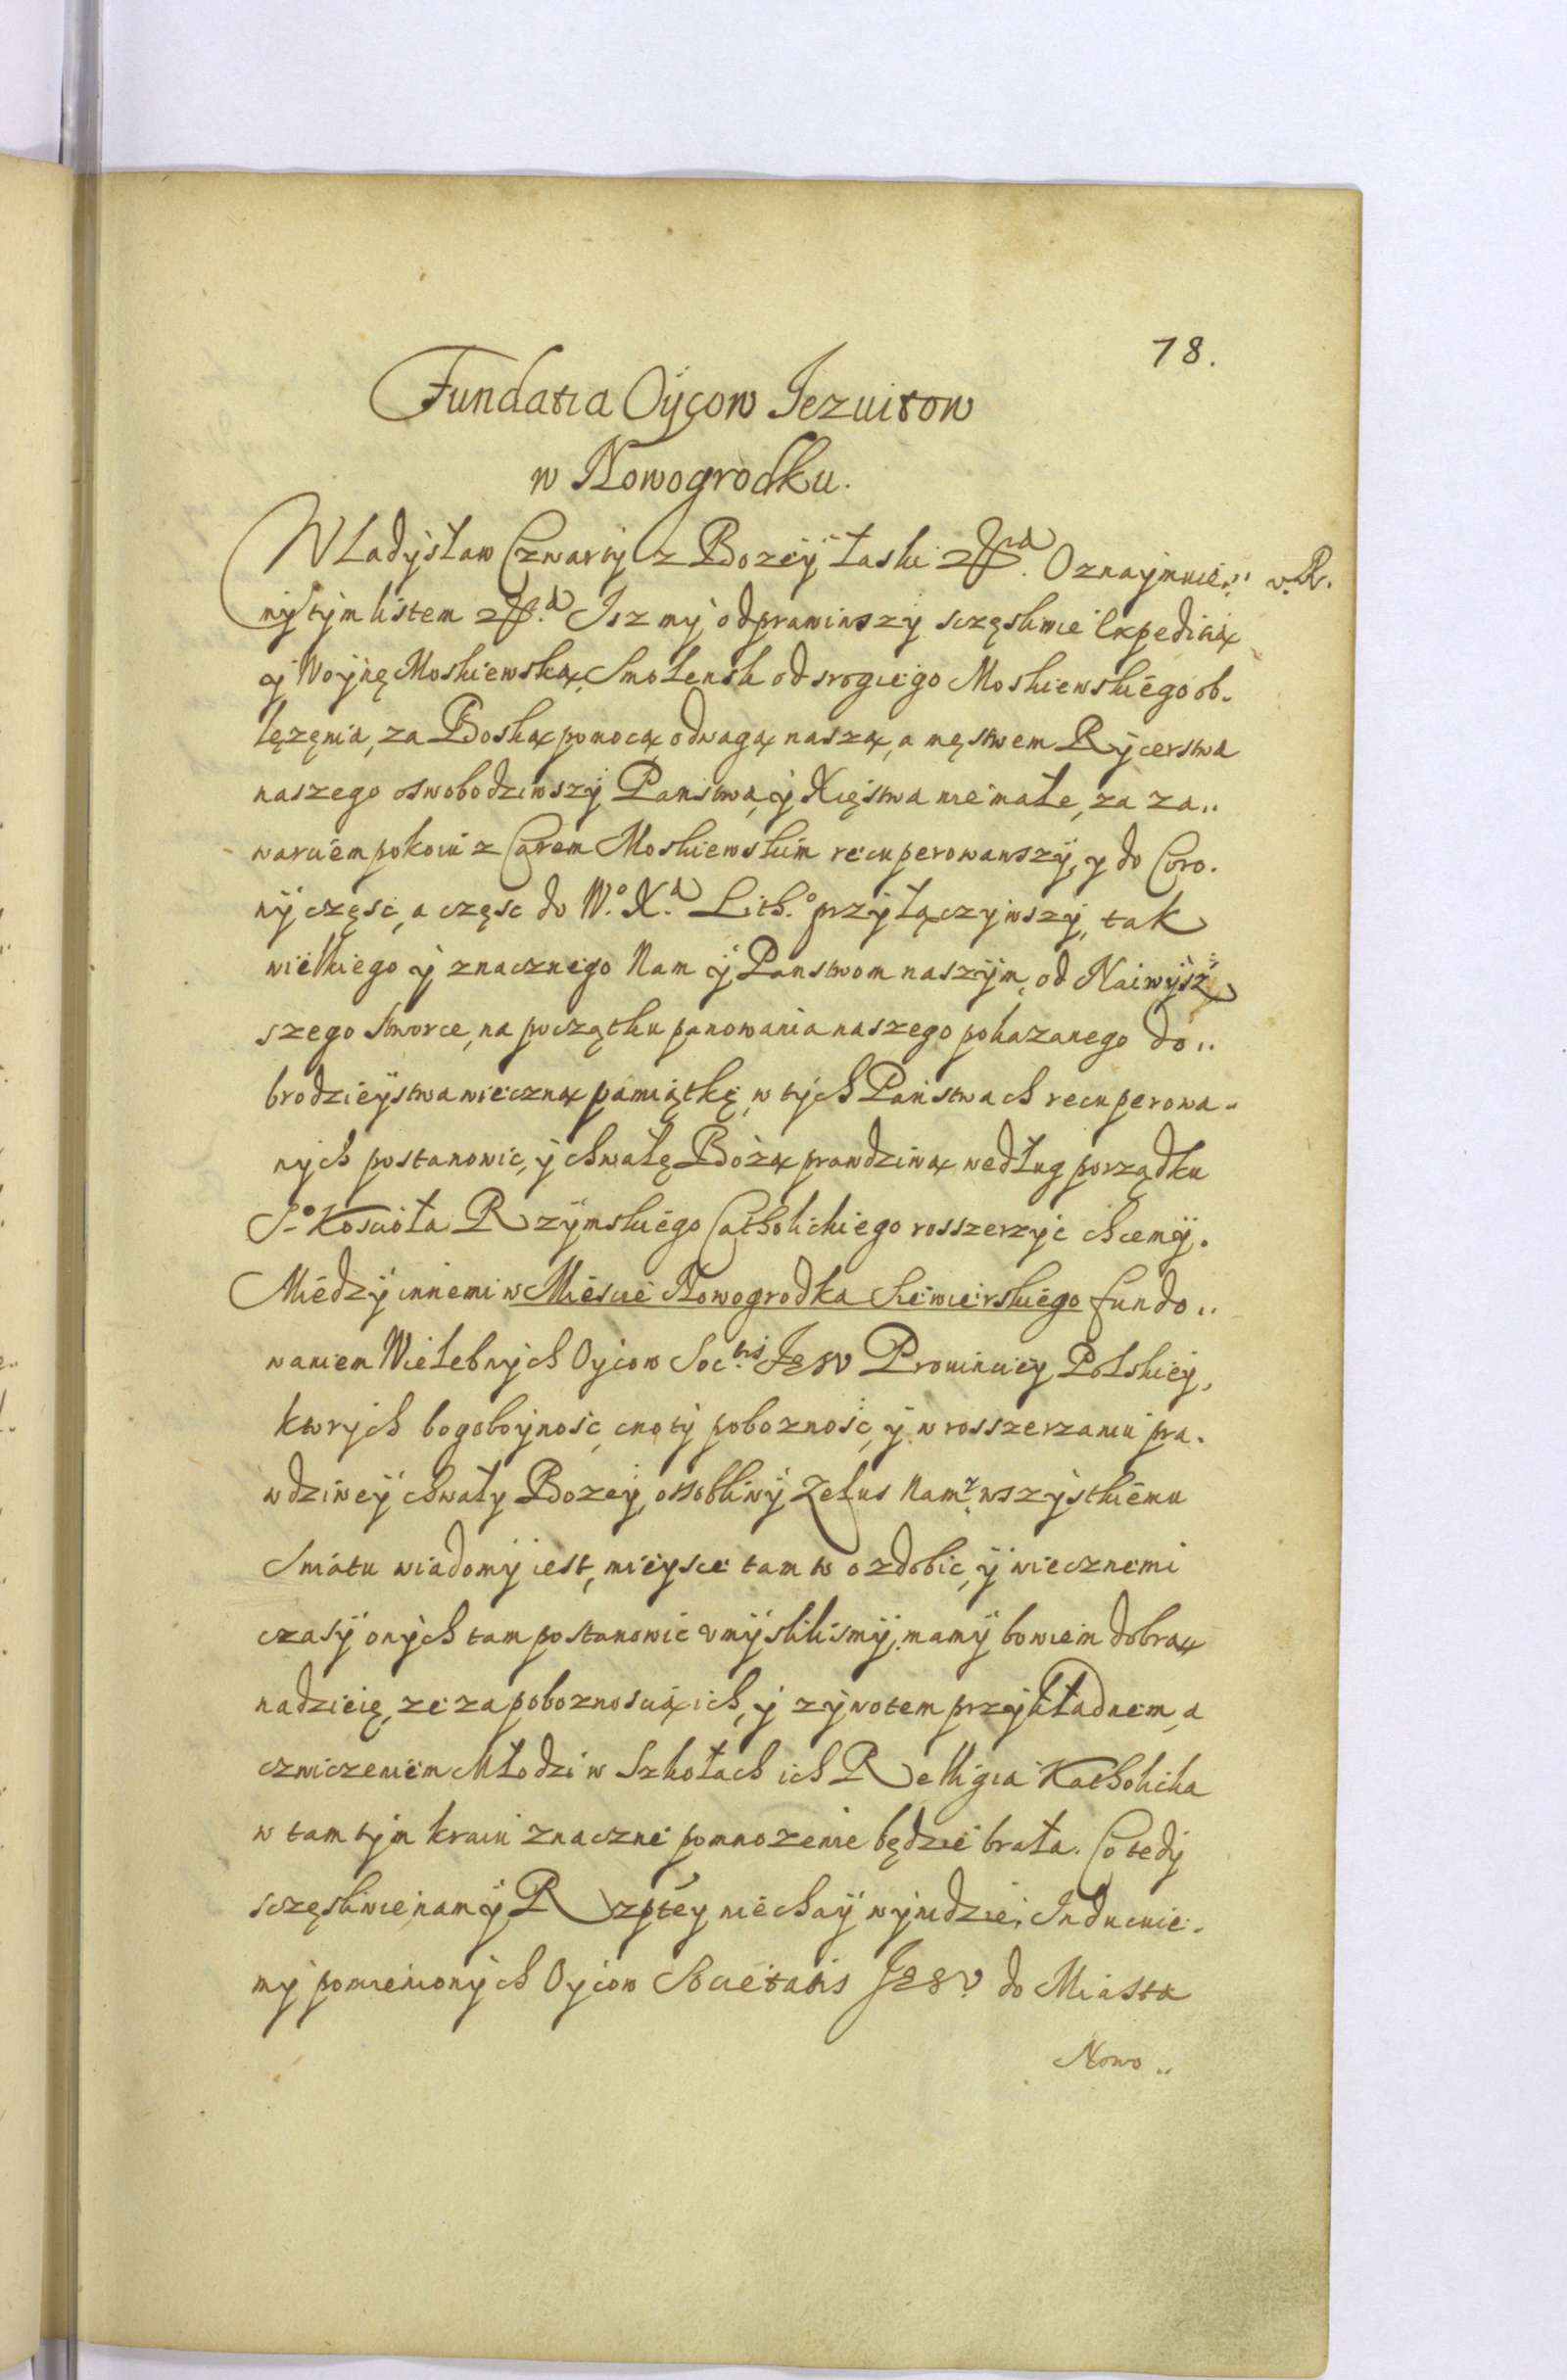 78.
Fundatia Oycow Iezuitow
w Nowogrodku.
Wladysław Czwarty z Bozey Łaski Oznaymuie..
my tym listem Isz my odprawiwszy sczęsliwie Expeditią
y Woynę Moskiewską, Smolensk od srogiego Moskiewskiego ob.
lęzęnia, za Boską pomocą odwagą naszą, a męstwem Rycerstwa
naszego oswobodziwszy Panstwa, y Xięstwa niemałe, za za..
warciem pokoiu z Carem Moskiewskim recuperowawszy, y do Coro.
ny część, a częsc do W.o X.a Lith.o przyłączywszy, tak
wielkiego y znacznego Nam y Panstwom naszym, od Naiwysz
szego stworce, na początku panowania naszego pokazanego do..
brodzieystwa wieczną pamiątkę, w tych Panstwach recuperowa-
nych postanowic, y chwałę Bożą prawdziwą według porządku
S.o Kościoła Rzymskiego Catholickiego rosszerzyc chcemy.
Miedzy innemi w Miescie Nowogrodka Siewierskiego fundo..
waniem Wielebnych Oycow Soc.tis Jesv Prouinciey Polskiey,
ktorych bogoboynosc, cnoty poboznosc, y w rosszerzaniu pra.
wdziwey chwały Bozey, ossobliwy Zelus Nam y wszystkiemu
Swiatu wiadomy iest, mieysce tamto ozdobic, y wiecznemi
czasy onych tam postanowic vmyslilismy, mamy bowiem dobrą
nadzieię, ze za poboznoscią ich, y zywotem przykładnem, a
czwiczeniem Młodzi w Szkołach ich Relligia Katholicka
w tamtym kraiu znaczne pomnozenie będzie brała. Co tedy
sczęsliwie nam y Rzptey niechay wynidzie, Inducuie.
my pomienionych Oycow Societatis Jesv do Miasta
Nowo..